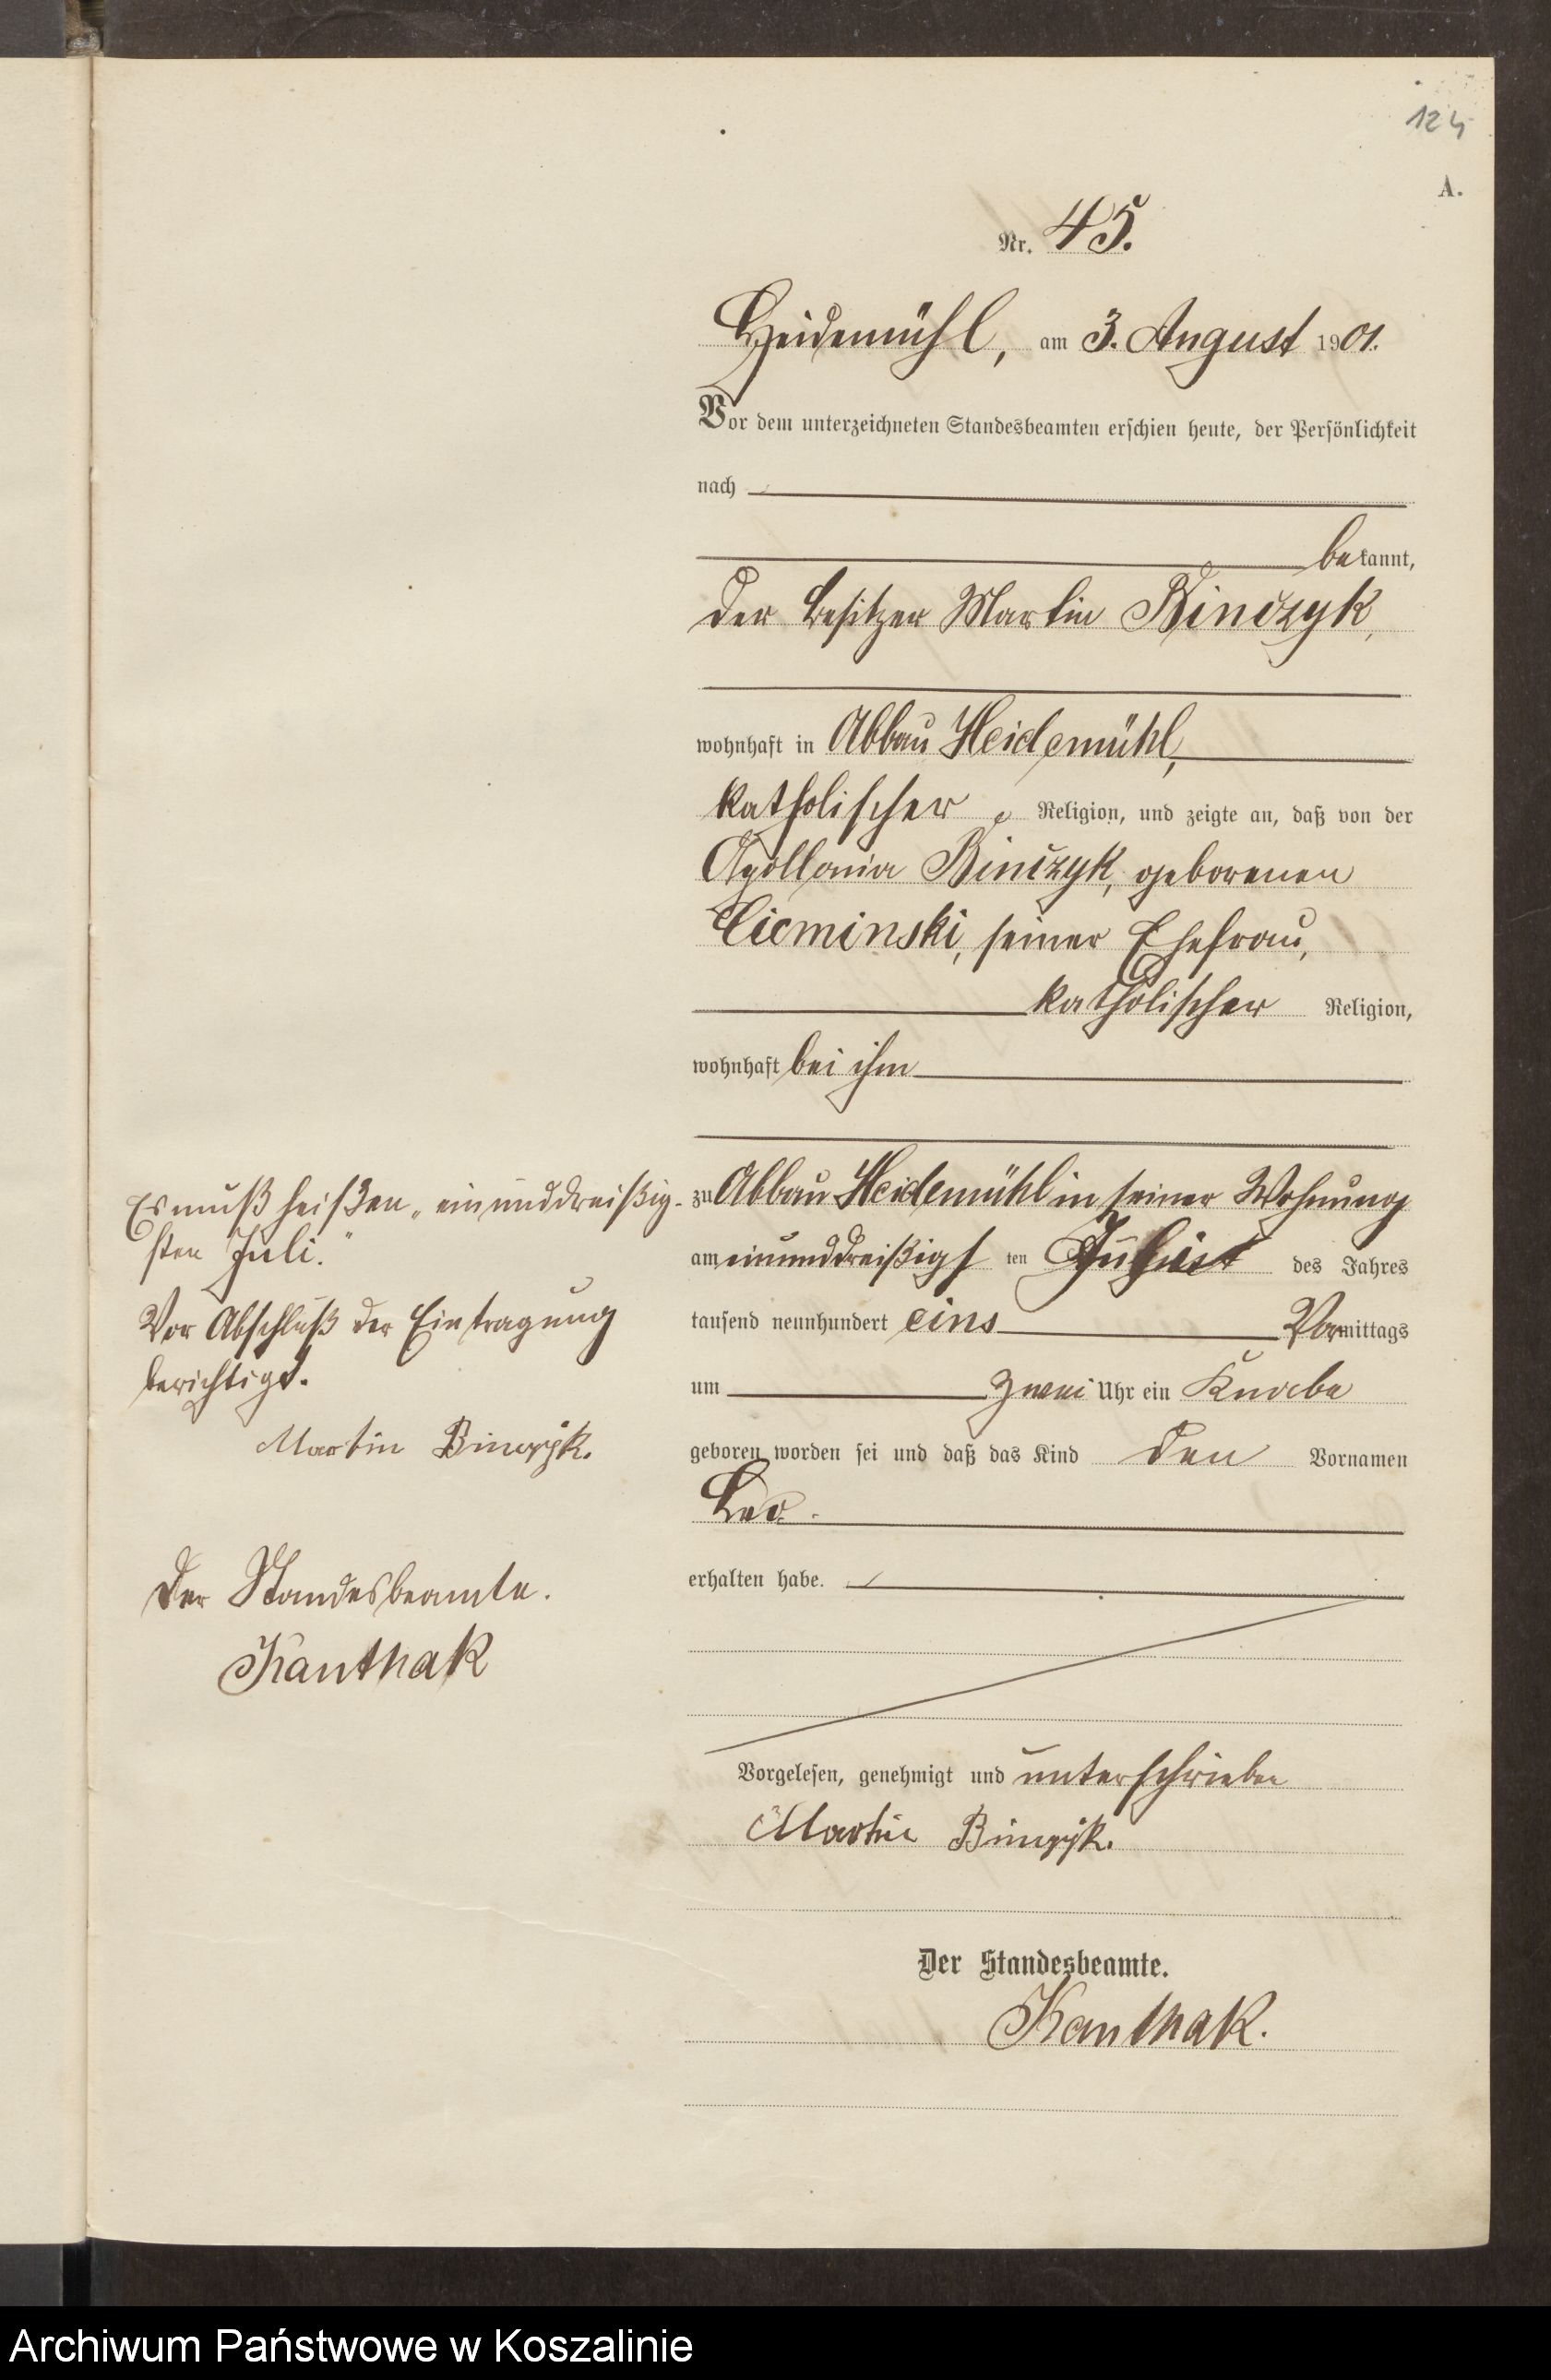 124
A.
Nr. 45.
Heidemühl, am 3. August 1901.
Vor dem unterzeichneten Standesbeamten erschien heute, der Persönlichkeit
nach
bekannt,
der Besitzer Martin Binczyk,
wohnhaft in Abbau Heidemühl,
katholischer Religion, und zeigte an, daß von der
Apollonia Binczyk, geborenen
Cieminski, seiner Ehefrau,
katholischer Religion,
wohnhaft bei ihm
zu Abbau Heidemühl in seiner Wohnung
am einunddreißigsten des Jahres
tausend neunhundert eins Vormittags
um zwei Uhr ein Knabe
geboren worden sei und daß das Kind den Vornamen
Leo.
erhalten habe.
Vorgelesen, genehmigt und unterschrieben
Martin Binczyk.
Der Standesbeamte.
Kanthak.
Es muß heißen „einunddreißig-
sten Juli."
Vor Abschluß der Eintragung
berichtigt.
Martin Binczyk.
Der Standesbeamte.
Kanthak
Archiwum Państwowe w Koszalinie